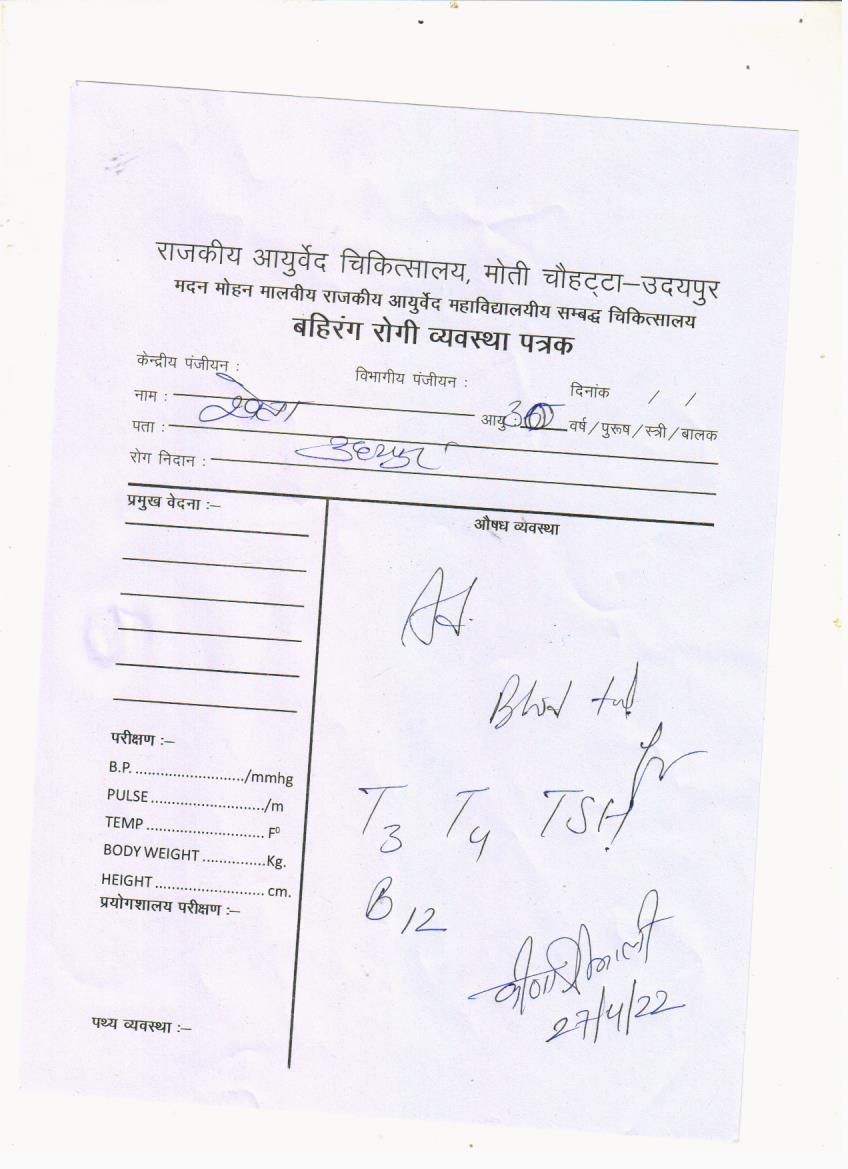 राजकीय आयुर्वेद चिकित्सालय, मोती चौहट्टा–उदयपुर
मदन मोहन मालवीय राजकीय आयुर्वेद महाविद्यालयीय सम्बद्ध चिकित्सालय
बहिरंग रोगी व्यवस्था पत्रक
केन्द्रीय पंजीयन : विभागीय पंजीयन : दिनांक / /
नाम : आयु : वर्ष/पुरूष/स्त्री/बालक
पता : उदयपुर
रोग निदान :
प्रमुख वेदना :–
औषध व्यवस्था
Adv.
Blood test
for
परीक्षण :–
B.P. ........................../mmhg
PULSE.........................../m
TEMP ............................ F⁰
BODY WEIGHT ...............Kg.
HEIGHT .......................... cm.
T3 T4 TSH
B12
प्रयोगशालय परीक्षण :–
27/4/22
पथ्य व्यवस्था :–